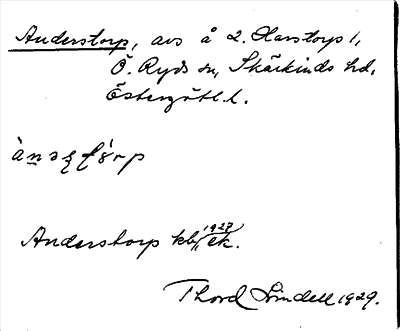 Anderstorp, avs å 2. Harstorp 1,
Ö. Ryds sn, Skärkinds hd,
Östergötl. l.
Anderstorp kbr 1927 ek.
Thord Lindell 1929.